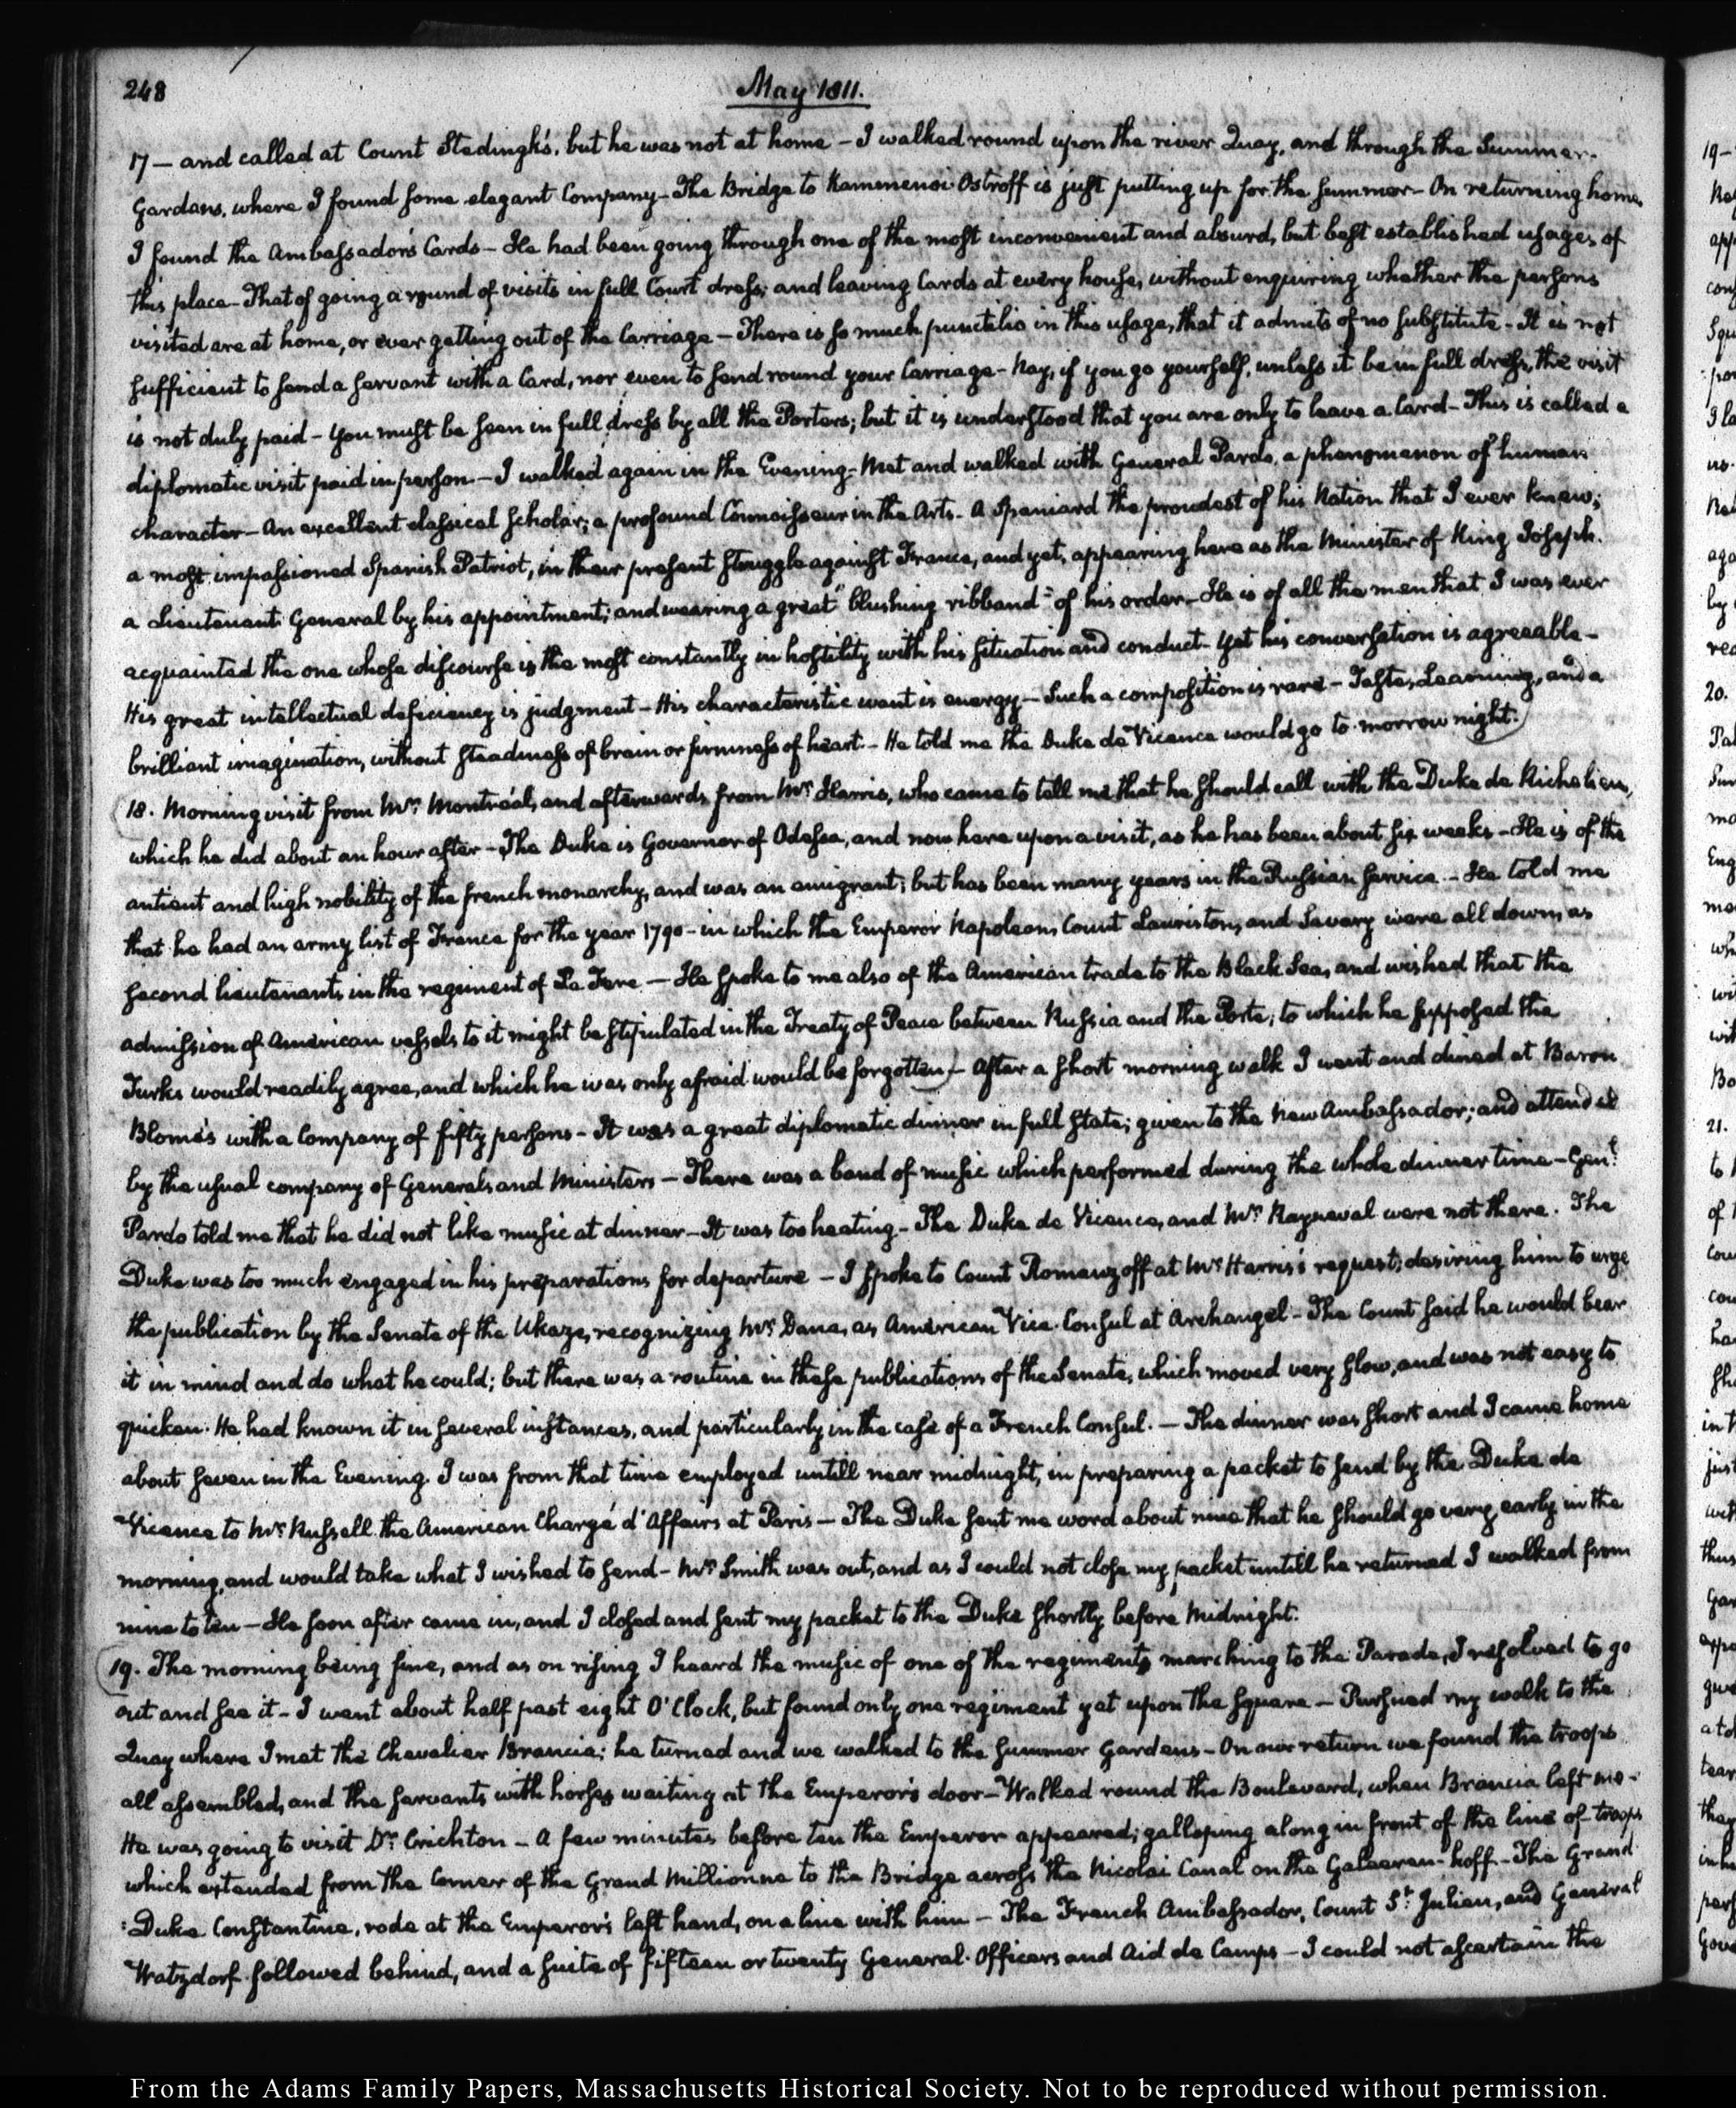 248
May 1811.
17 — and called at Count Stedingk's, but he was not at home – I walked round upon the river Quay, and through the Summer-
Gardens, where I found some elegant Company – The Bridge to Kammenoi-Ostroff is just putting up for the summer – On returning home,
I found the Ambassador's Cards – He had been going through one of the most inconvenient and absurd, but best established usages of
this place – That of going a round of visits in full Court dress; and leaving Cards at every house, without enquiring whether the persons
visited are at home, or ever getting out of the Carriage – There is so much punctilio in this usage, that it admits of no substitute – It is not
sufficient to send a servant with a Card, nor even to send round your Carriage – Nay, if you go yourself, unless it be in full dress, the visit
is not duly paid – You must be seen in full dress by all the Porters; but it is understood that you are only to leave a Card – This is called a
diplomatic visit paid in person – I walked again in the Evening – Met and walked with General Pardo, a phenomenon of human
character – An excellent classical scholar; a profound Connoisseur in the Arts – A Spaniard the proudest of his Nation that I ever knew;
a most impassioned Spanish Patriot, in their present struggle against France, and yet, appearing here as the Minister of King Joseph.
a Lieutenant General by his appointment; and wearing a great "blushing ribband" of his order – He is of all the men that I was ever
acquainted the one whose discourse is the most constantly in hostility with his situation and conduct – Yet his conversation is agreeable –
His great intellectual deficiency is judgment – His characteristic want is energy – Such a composition is rare – Taste, Learning, and a
brilliant imagination, without steadiness of brain or firmness of heart – He told me the Duke de Vicence would go to-morrow night.
18. Morning visit from Mr. Montréal, and afterwards from Mr. Harris, who came to tell me that he should call with the Duke de Richelieu,
which he did about an hour after – The Duke is Governor of Odessa, and now here upon a visit, as he has been about six weeks – He is of the
antient and high nobility of the french monarchy, and was an emigrant; but has been many years in the Russian service – He told me
that he had an army list of France for the year 1790 – in which the Emperor Napoleon, Count Lauriston, and Savary were all down, as
second lieutenants in the regiment of La Fere — He spoke to me also of the American trade to the Black Sea, and wished that the
admission of American vessels to it might be stipulated in the Treaty of Peace between Russia and the Porte; to which he supposed the
Turks would readily agree, and which he was only afraid would be forgotten – After a short morning walk I went and dined at Baron
Blome's with a Company of fifty persons – It was a great diplomatic dinner in full state; given to the New Ambassador; and attended
by the usual company of Generals and Ministers – There was a band of music which performed during the whole dinner time – Genl.
Pardo told me that he did not like music at dinner – It was too heating – The Duke de Vicence, and Mr. Rayneval were not there. The
Duke was too much engaged in his preparations for departure – I spoke to Count Romanzoff at Mr. Harris's request; desiring him to urge
the publication by the Senate of the Ukaze, recognizing Mr. Dana, as American Vice-Consul at Archangel – The Count said he would bear
it in mind and do what he could; but there was a routine in these publications of the Senate, which moved very slow, and was not easy to
quicken. He had known it in several instances, and particularly in the case of a French Consul. — The dinner was short and I came home
about seven in the Evening. I was from that time employed untill near midnight, in preparing a packet to send by the Duke de
Vicence to Mr. Russell the American Chargé d'Affairs at Paris – The Duke sent me word about nine that he should go very early in the
morning, and would take what I wished to send – Mr. Smith was out, and as I could not close my packet untill he returned I walked from
nine to ten – He soon after came in, and I closed and sent my packet to the Duke shortly before Midnight.
19. The morning being fine, and as on rising I heard the music of one of the regiments marching to the Parade, I resolved to go
out and see it – I went about half past eight O'Clock, but found only one regiment yet upon the Square – Pursued my walk to the
Quay where I met the Chevalier Brancia; he turned and we walked to the Summer Gardens – On our return we found the troops
all assembled, and the servants with horses waiting at the Emperor's door – Walked round the Boulevard, when Brancia left me –
He was going to visit Dr. Crichton – A few minutes before ten the Emperor appeared; galloping along in front of the line of troops
which extended from the Corner of the Grand Millionne to the Bridge across the Nicolai Canal on the Galeeren-hoff – The Grand-
:Duke Constantine, rode at the Emperor's left hand, on a line with him – The French Ambassador, Count St. Julien, and General
Watzdorf followed behind, and a suite of fifteen or twenty General-Officers and Aid de Camps – I could not ascertain the
From the Adams Family Papers, Massachusetts Historical Society. Not to be reproduced without permission.